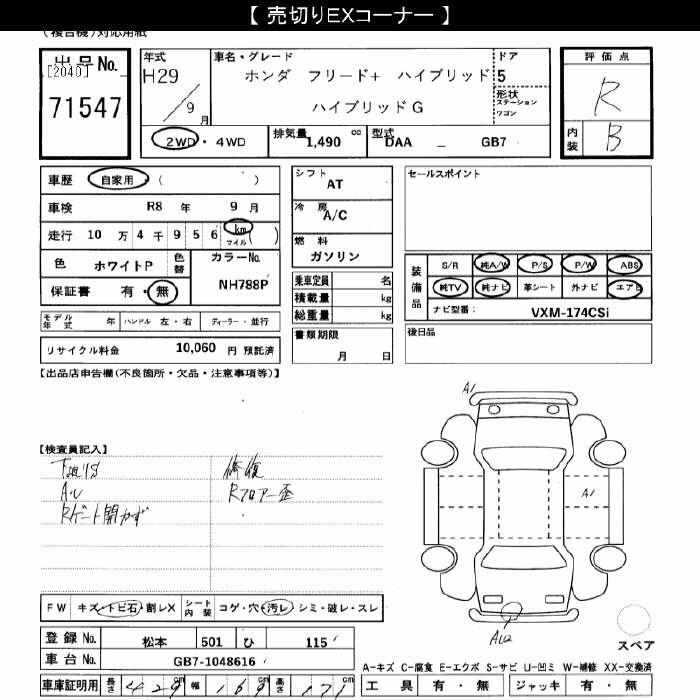 【 売切りEXコーナー 】
(複合機)対応用紙
出品No.
[2040]
71547
年式
H29
9 月
車名・グレード
ホンダ フリード+ ハイブリッド
ハイブリッドG
ドア
5
形状
ステーション
ワゴン
評価点
R
内装
B
2WD ・ 4WD
排気量
1,490 cc
型式
DAA _ GB7
車歴 自家用 ・ ( )
車検 R8 年 9 月
走行 10 万 4 千 9 5 6 km マイル ( )
色 ホワイトP
色替
カラーNo.
NH788P
保証書 有 ・ 無
モデル年式 年
ハンドル 左 ・ 右
ディーラー ・ 並行
リサイクル料金 10,060 円 預託済
シフト
AT
冷房
A/C
燃料
ガソリン
乗車定員 名
積載量 kg
総重量 kg
書類期限
月 日
セールスポイント
装備品
S/R 純A/W P/S P/W ABS
純TV 純ナビ 革シート 外ナビ エアB
ナビ型番: VXM-174CSi
後日品
【出品店申告欄(不良箇所・欠品・注意事項等)】
【検査員記入】
下廻りS
A・U
Rゲート開かず
修復
Rフロアー歪
A1
A1
AU2
FW キズ・トビ石・割レX
シート内装 コゲ・穴・汚レ・シミ・破レ・スレ
登録No. 松本 501 ひ 115
車台No. GB7-1048616
車庫証明用 長さ 429 cm 幅 169 cm 高さ 171 cm
スペア
A-キズ C-腐食 E-エクボ S-サビ U-凹ミ W-補修 XX-交換済
工具 有 ・ 無 ジャッキ 有 ・ 無